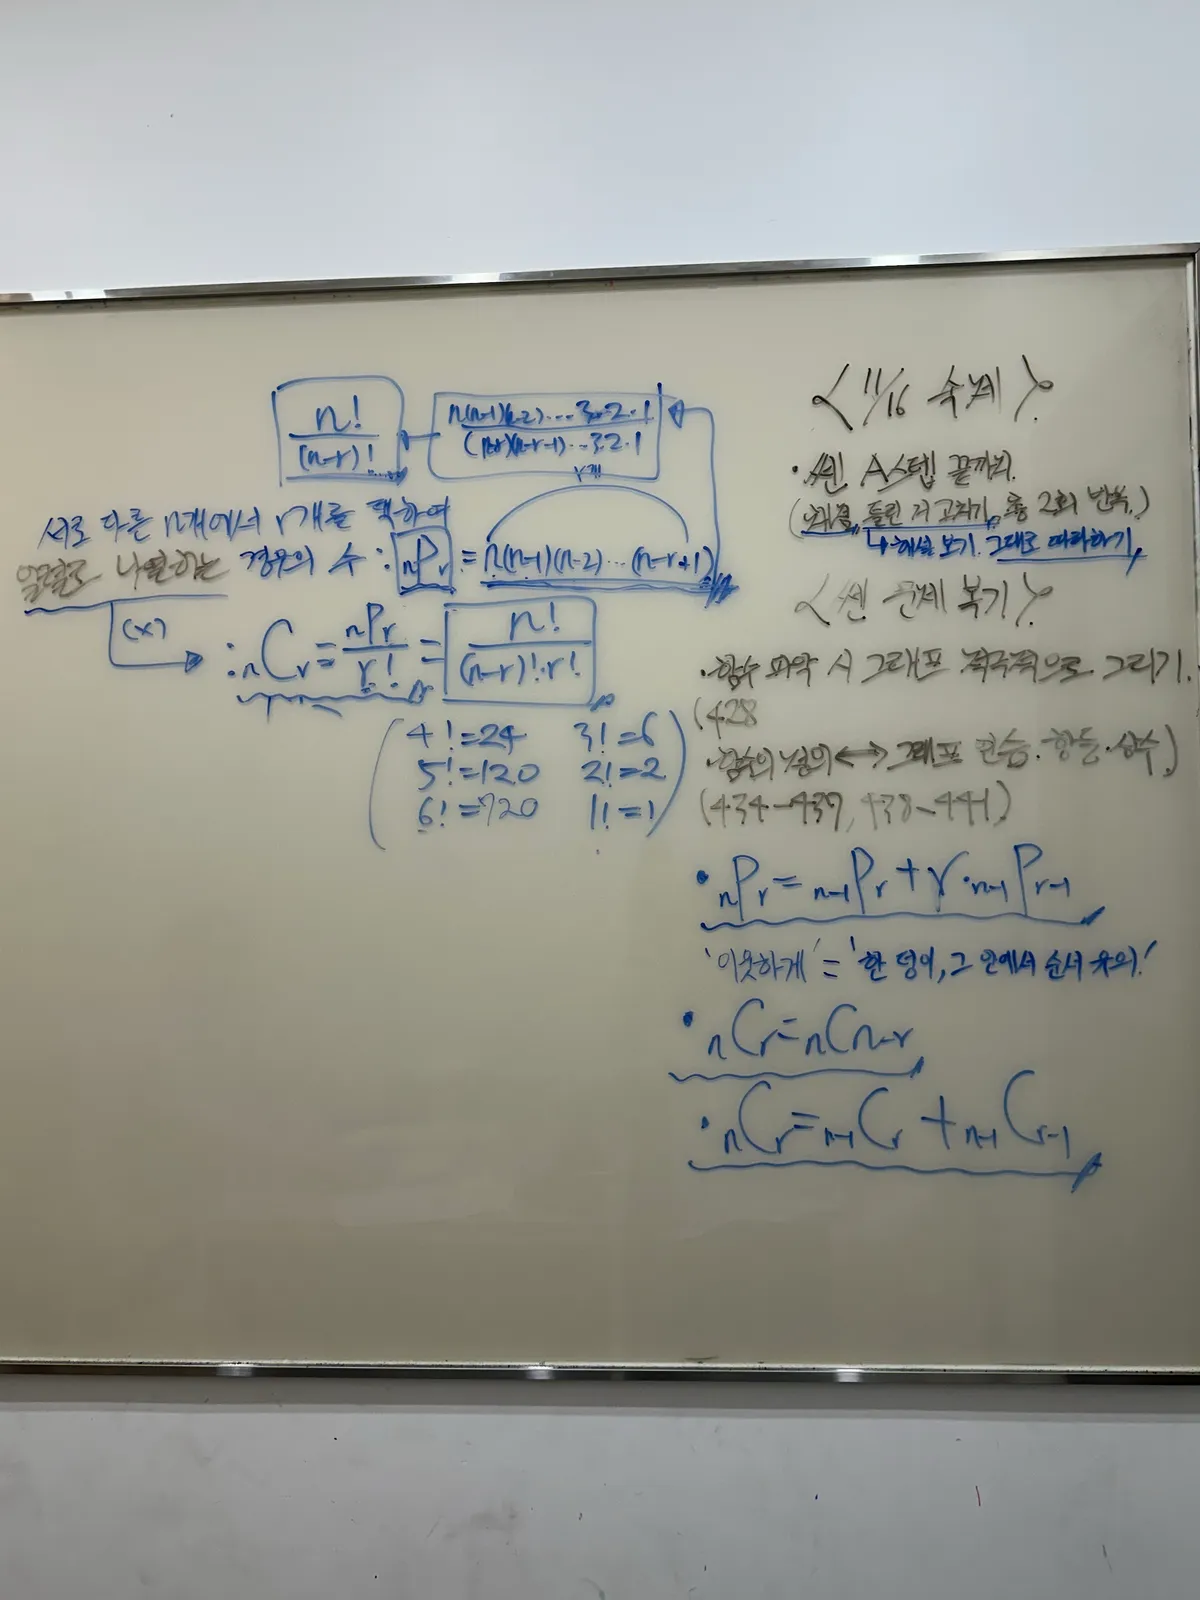 n! / (n-r)!
n(n-1)(n-2)....3.2.1 / (n-r)(n-r-1)...3.2.1
r개
서로 다른 n개에서 r개를 택하여
일렬로 나열하는 경우의 수 : nPr = n(n-1)(n-2)...(n-r+1)
(x)
: nCr = nPr / r! = n! / (n-r)!·r!
4!=24 3!=6
5!=120 2!=2
6!=720 1!=1
<11/16 숙제>
·쎈 A스텝 끝까지.
틀린 거 고치기, 총 2회 반복.)
↳해설 보기. 그대로 따라하기,
<쎈 문제 복기>
·함수 파악 시 그래프 적극적으로 그리기.
(428
·함수의 정의 ↔ 그래프 연습. 항등·상수)
(434-437, 438-441)
·nPr = n-1Pr + r·n-1Pr-1
'이웃하게' = '한 덩이, 그 안에서 순서 유의!'
·nCr = nCn-r
·nCr = n-1Cr + n-1Cr-1